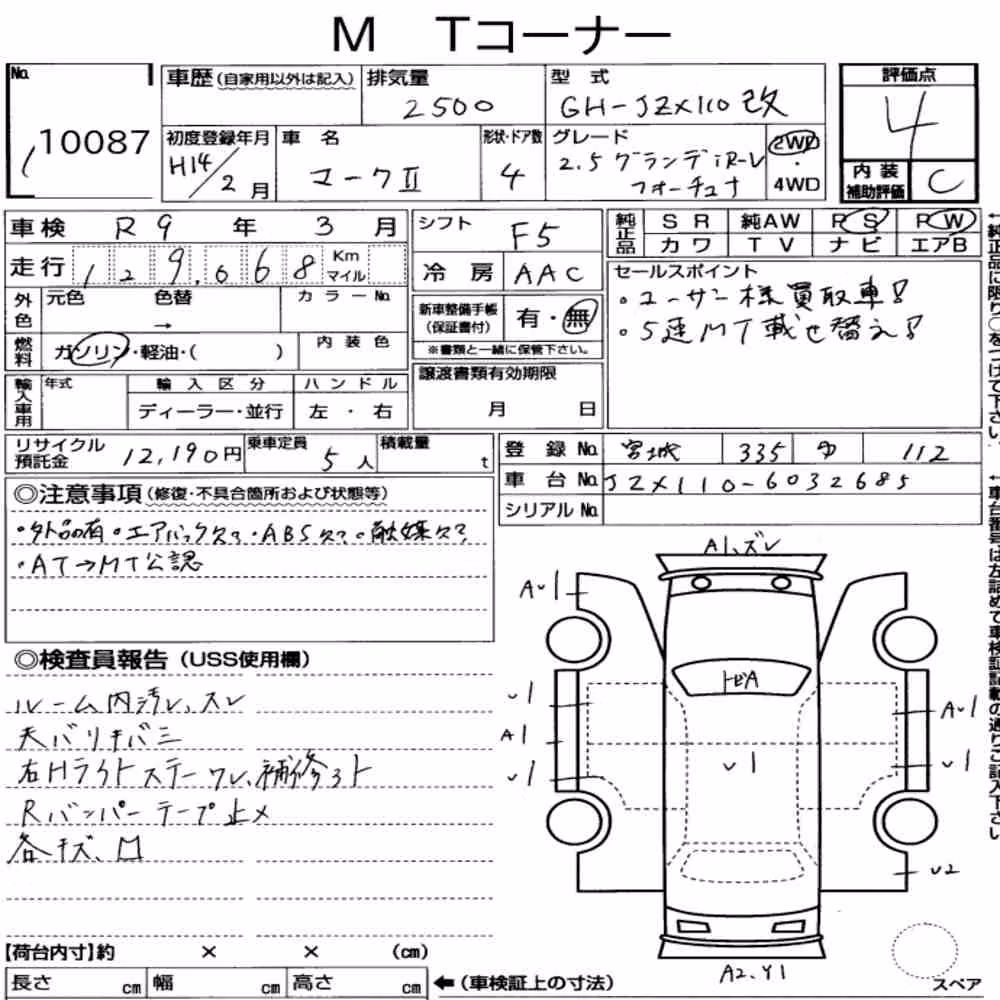 M Tコーナー
No. 10087
車歴 (自家用以外は記入)
排気量 2500
型式 GH-JZX110改
評価点 4
初度登録年月 H14/2月
車名 マークⅡ
形状・ドア数 4
グレード 2.5 グランデiR-V フォーチュナ
2WD・4WD
内装補助評価 C
車検 R9年 3月
シフト F5
純正品 SR 純AW PS PW
カワ TV ナビ エアB
走行 129,068 Km マイル
冷房 AAC
セールスポイント
・ユーザー様買取車!
・5速MT載せ替え!
外色 元色 色替 → カラーNo.
新車整備手帳 (保証書付) 有・無
※書類と一緒に保管下さい。
燃料 ガソリン・軽油・( ) 内装色
譲渡書類有効期限 月 日
輸入車用 年式 輸入区分 ハンドル
ディーラー・並行 左・右
リサイクル預託金 12,190円 乗車定員 5人 積載量 t
登録No. 宮城 335 ゆ 112
車台No. JZX110-6032685
シリアルNo.
◎注意事項 (修復・不具合箇所および状態等)
・外品の有・エアバック欠?・ABS欠?・触媒欠?
・AT→MT公認
◎検査員報告 (USS使用欄)
ルーム内汚レ、スレ
天バリキバミ
右Hライトステーワレ、補修多ト
Rバンパーテープ止メ
各キズ、凹
【荷台内寸】約 × × (cm)
長さ cm 幅 cm 高さ cm
←(車検証上の寸法)
A1、ズレ
AU1
トビA
U1
AU1
A1
U1
U1
U1
U2
A2、Y1
スペア
←純正品に限り○をつけて下さい。
←車台番号は左詰めで車検証記載の通りご記入下さい